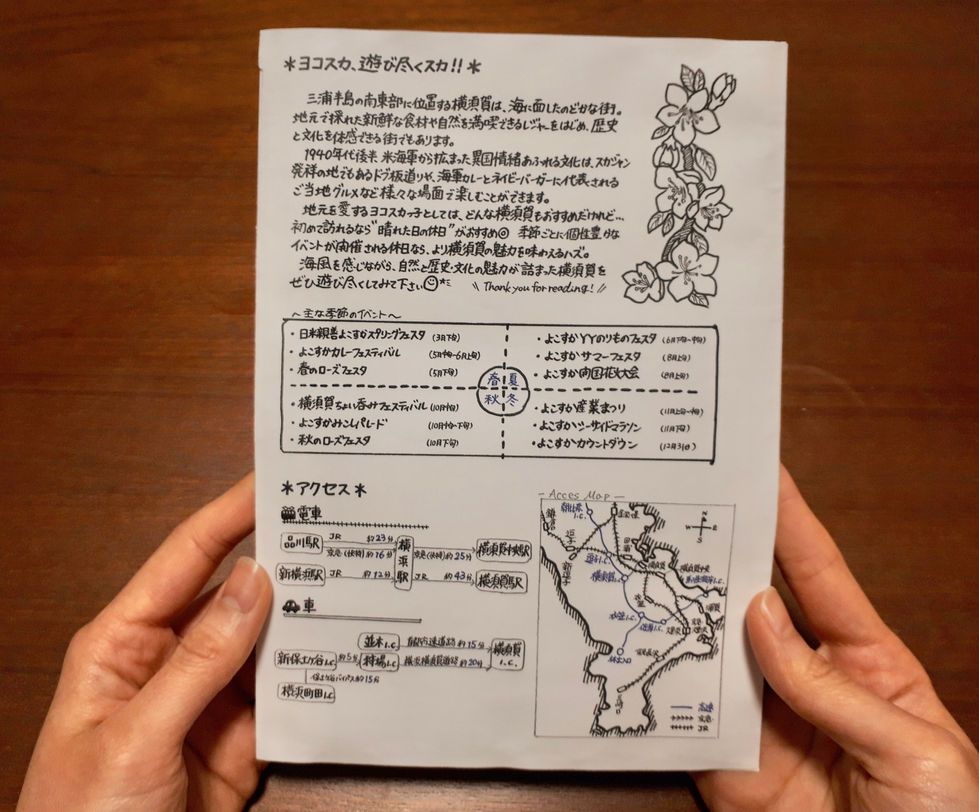 ＊ヨコスカ、遊び尽くスカ!!＊
三浦半島の南東部に位置する横須賀は、海に面したのどかな街。
地元で採れた新鮮な食材や自然を満喫できるレジャーをはじめ、歴史
と文化を体感できる街でもあります。
1940年代後半 米海軍から拡まった異国情緒あふれる文化は、スカジャン
発祥の地でもあるドブ板通りや、海軍カレーとネイビーバーガーに代表される
ご当地グルメなど様々な場面で楽しむことができます。
地元を愛するヨコスカっ子としては、どんな横須賀もおすすめだけれど…
初めて訪れるなら"晴れた日の休日"がおすすめ◎ 季節ごとに個性豊かな
イベントが開催される休日なら、より横須賀の魅力を味わえるハズ。
海風を感じながら、自然と歴史・文化の魅力が詰まった横須賀を
ぜひ遊び尽くしてみて下さい
\\ Thank you for reading! //
〜主な季節のイベント〜
・日米親善よこすかスプリングフェスタ (3月下旬)
・よこすかカレーフェスティバル (5月中旬〜6月上旬)
・春のローズフェスタ (5月下旬)
・よこすかYYのりものフェスタ (6月下旬〜中旬)
・よこすかサマーフェスタ (8月上旬)
・よこすか開国花火大会 (8月上旬)
春 夏
秋 冬
・横須賀ちょい呑みフェスティバル (10月中旬)
・よこすかみこしパレード (10月中旬〜下旬)
・秋のローズフェスタ (10月下旬)
・よこすか産業まつり (11月上旬〜中旬)
・よこすかシーサイドマラソン (11月下旬)
・よこすかカウントダウン (12月31日)
＊アクセス＊
電車
品川駅 JR 約23分 横浜駅 京急(快特)約25分 横須賀中央駅
京急(快特)約16分
新横浜駅 JR 約12分 JR 約43分 横須賀駅
車
並木I.C. 横浜横須賀道路 約15分 横須賀I.C.
新保土ヶ谷I.C. 約5分 狩場I.C. 横浜横須賀道路 約20分
保土ヶ谷バイパス約15分
横浜町田I.C.
- Acces Map -
朝比奈I.C.
金沢八景
鎌倉
逗子
新逗子
N
W E
S
田浦
逗子I.C.
横須賀
横須賀I.C.
横須賀中央
衣笠
衣笠I.C.
佐原I.C.
浦賀
久里浜
京急久里浜
京急長沢
三崎口
高速
京急
JR